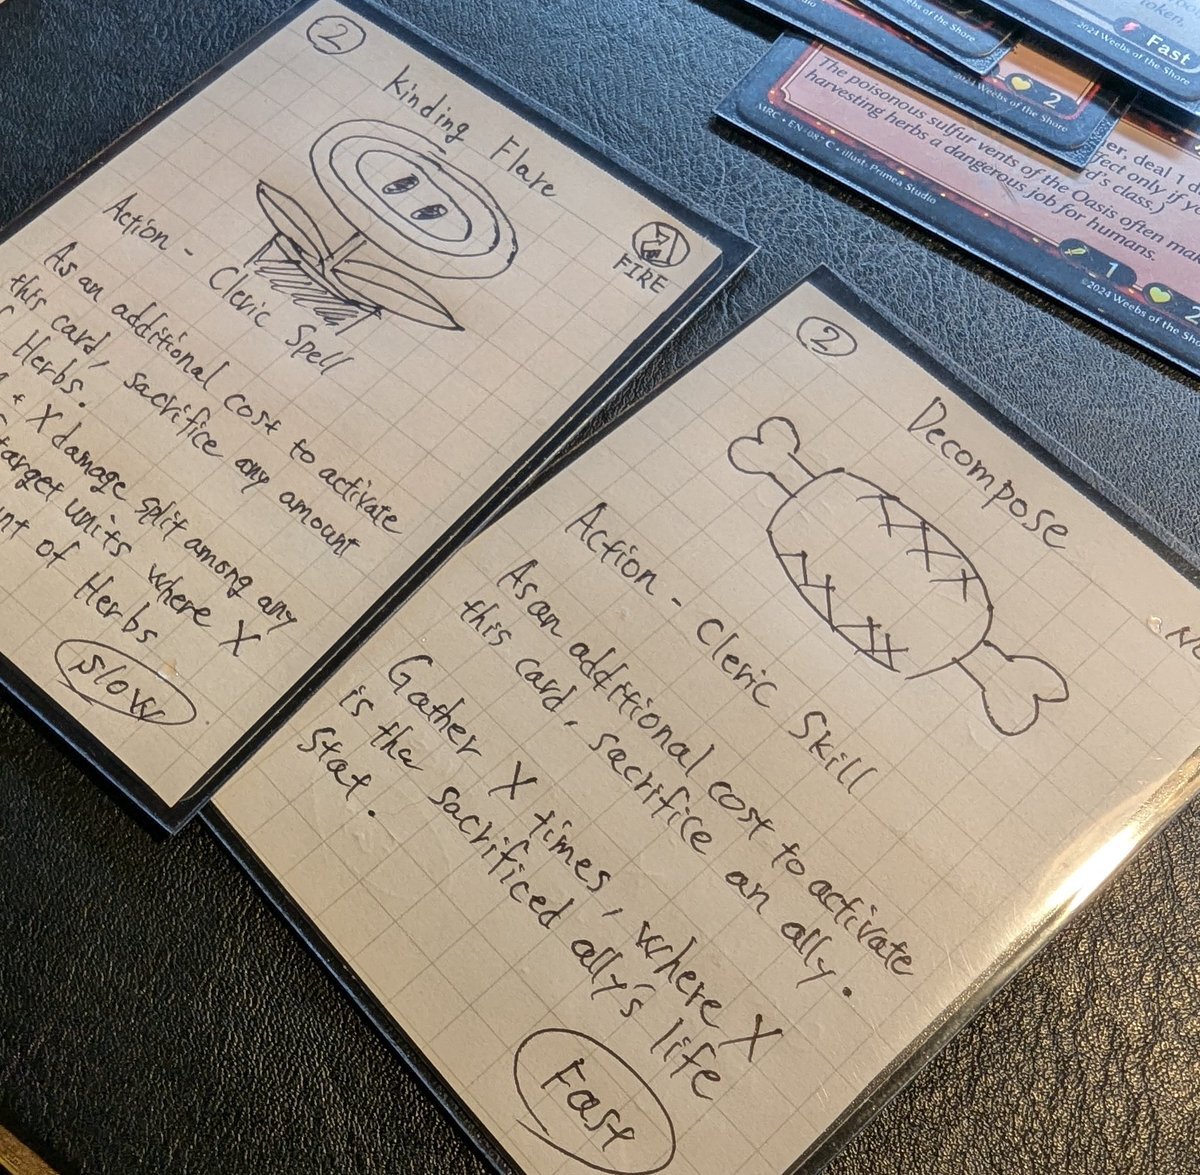 2
Kinding Flare
FIRE
Action - Cleric Spell
As an additional cost to activate
this card, sacrifice any amount
Herbs.
+ X damage split among any
target units where X
of Herbs
Slow
2
Decompose
Action - Cleric Skill
As an additional cost to activate
this card, sacrifice an ally.
Gather X times, where X
is the sacrificed ally's life
stat.
Fast
token,
Fast
2024 Weebs of the Shore
of the Shore
2
2024 Weebs of the Shore
er, deal 1
ffect only if
d's class.)
The poisonous sulfur vents of the Oasis often
harvesting herbs a dangerous job for humans.
1
2
MRC • EN-087 C • illust. Primea Studio
©2024 Weebs of the